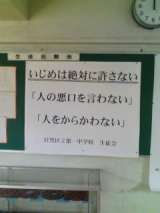 いじめは絶対に許さない
「人の悪口を言わない」
「人をからかわない」
第一中学校 生徒会